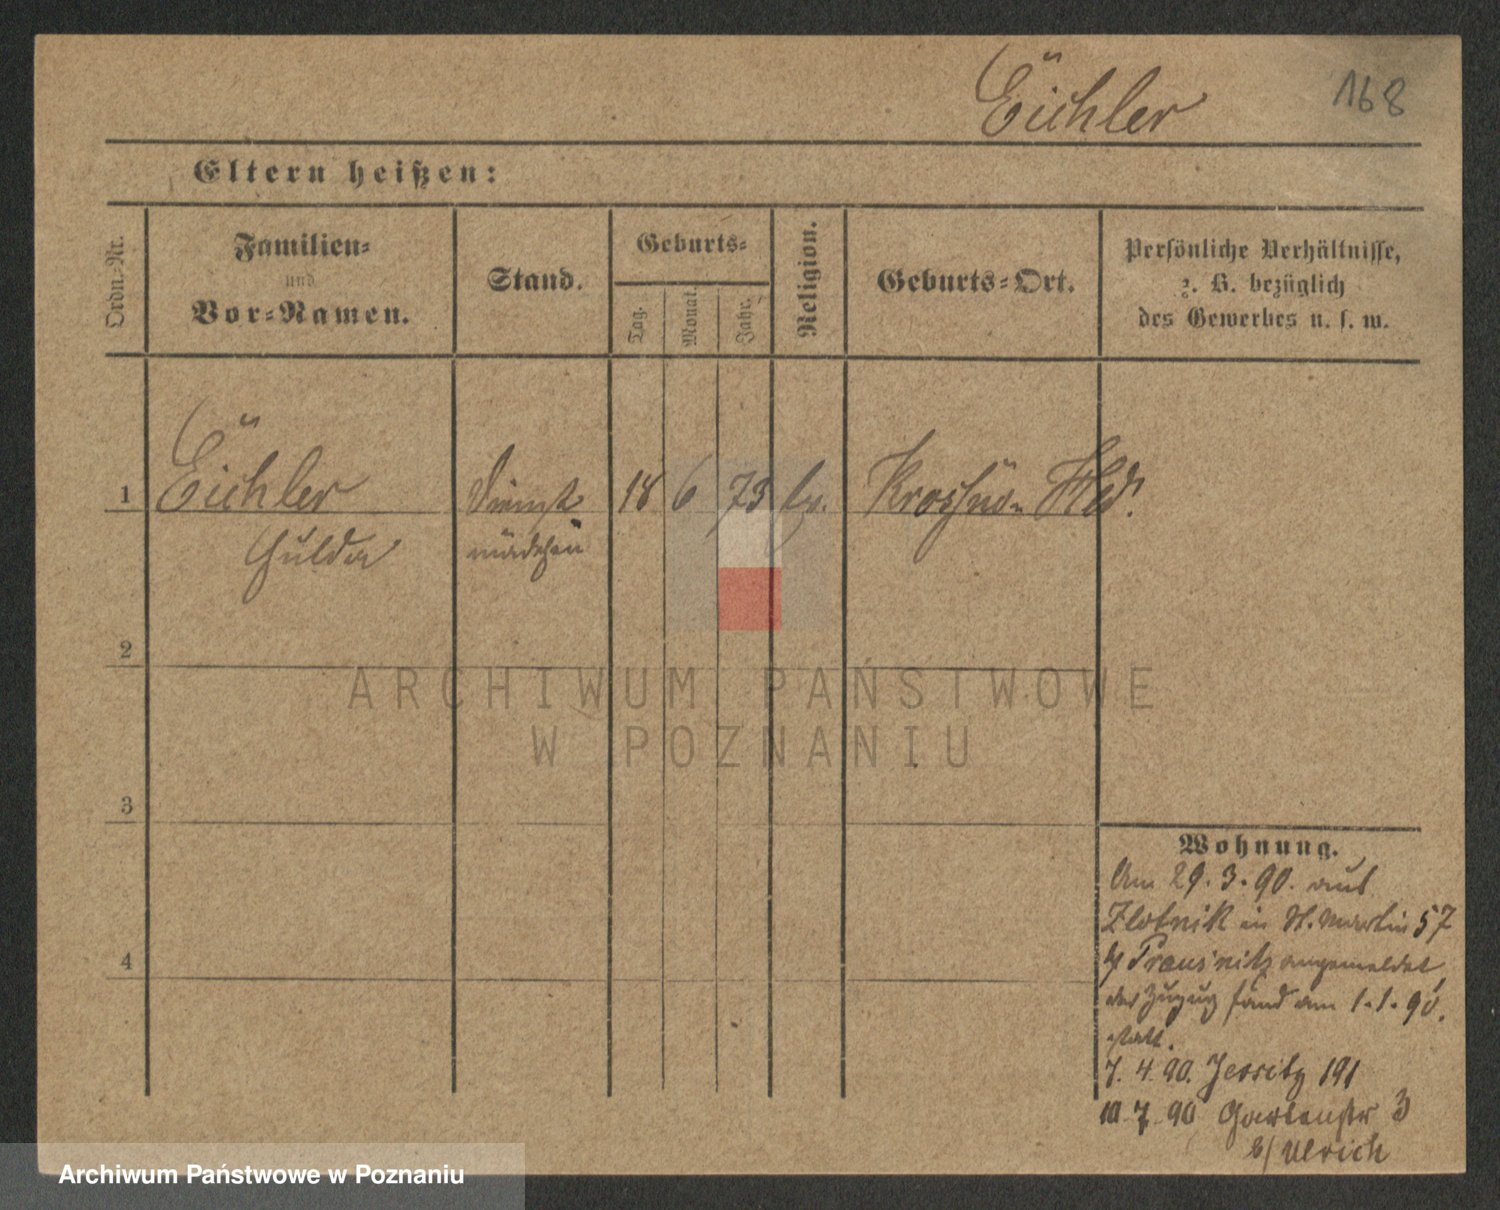 Eichler 168
Eltern heißen:
Ordn.-Nr.
Familien-
und
Vor-Namen.
Stand.
Geburts-
Tag.
Monat.
Jahr.
Religion.
Geburts-Ort.
Persönliche Verhältnisse,
z. B. bezüglich
des Gewerbes u. s. w.
1 Eichler Dienst 18 6 73 Krosno
Hulda mädchen
2
ARCHIWUM PAŃSTWOWE
W POZNANIU
3
4
Wohnung.
Am 29.3.90. aus
Zlotnik in St. Martin 57
b/ Prausnitz angemeldet,
der Zuzug fand am 1.1.90.
statt.
7.4.90. Jersitz 191
10.7.90 Gartenstr 3
b/ Ulrich
Archiwum Państwowe w Poznaniu